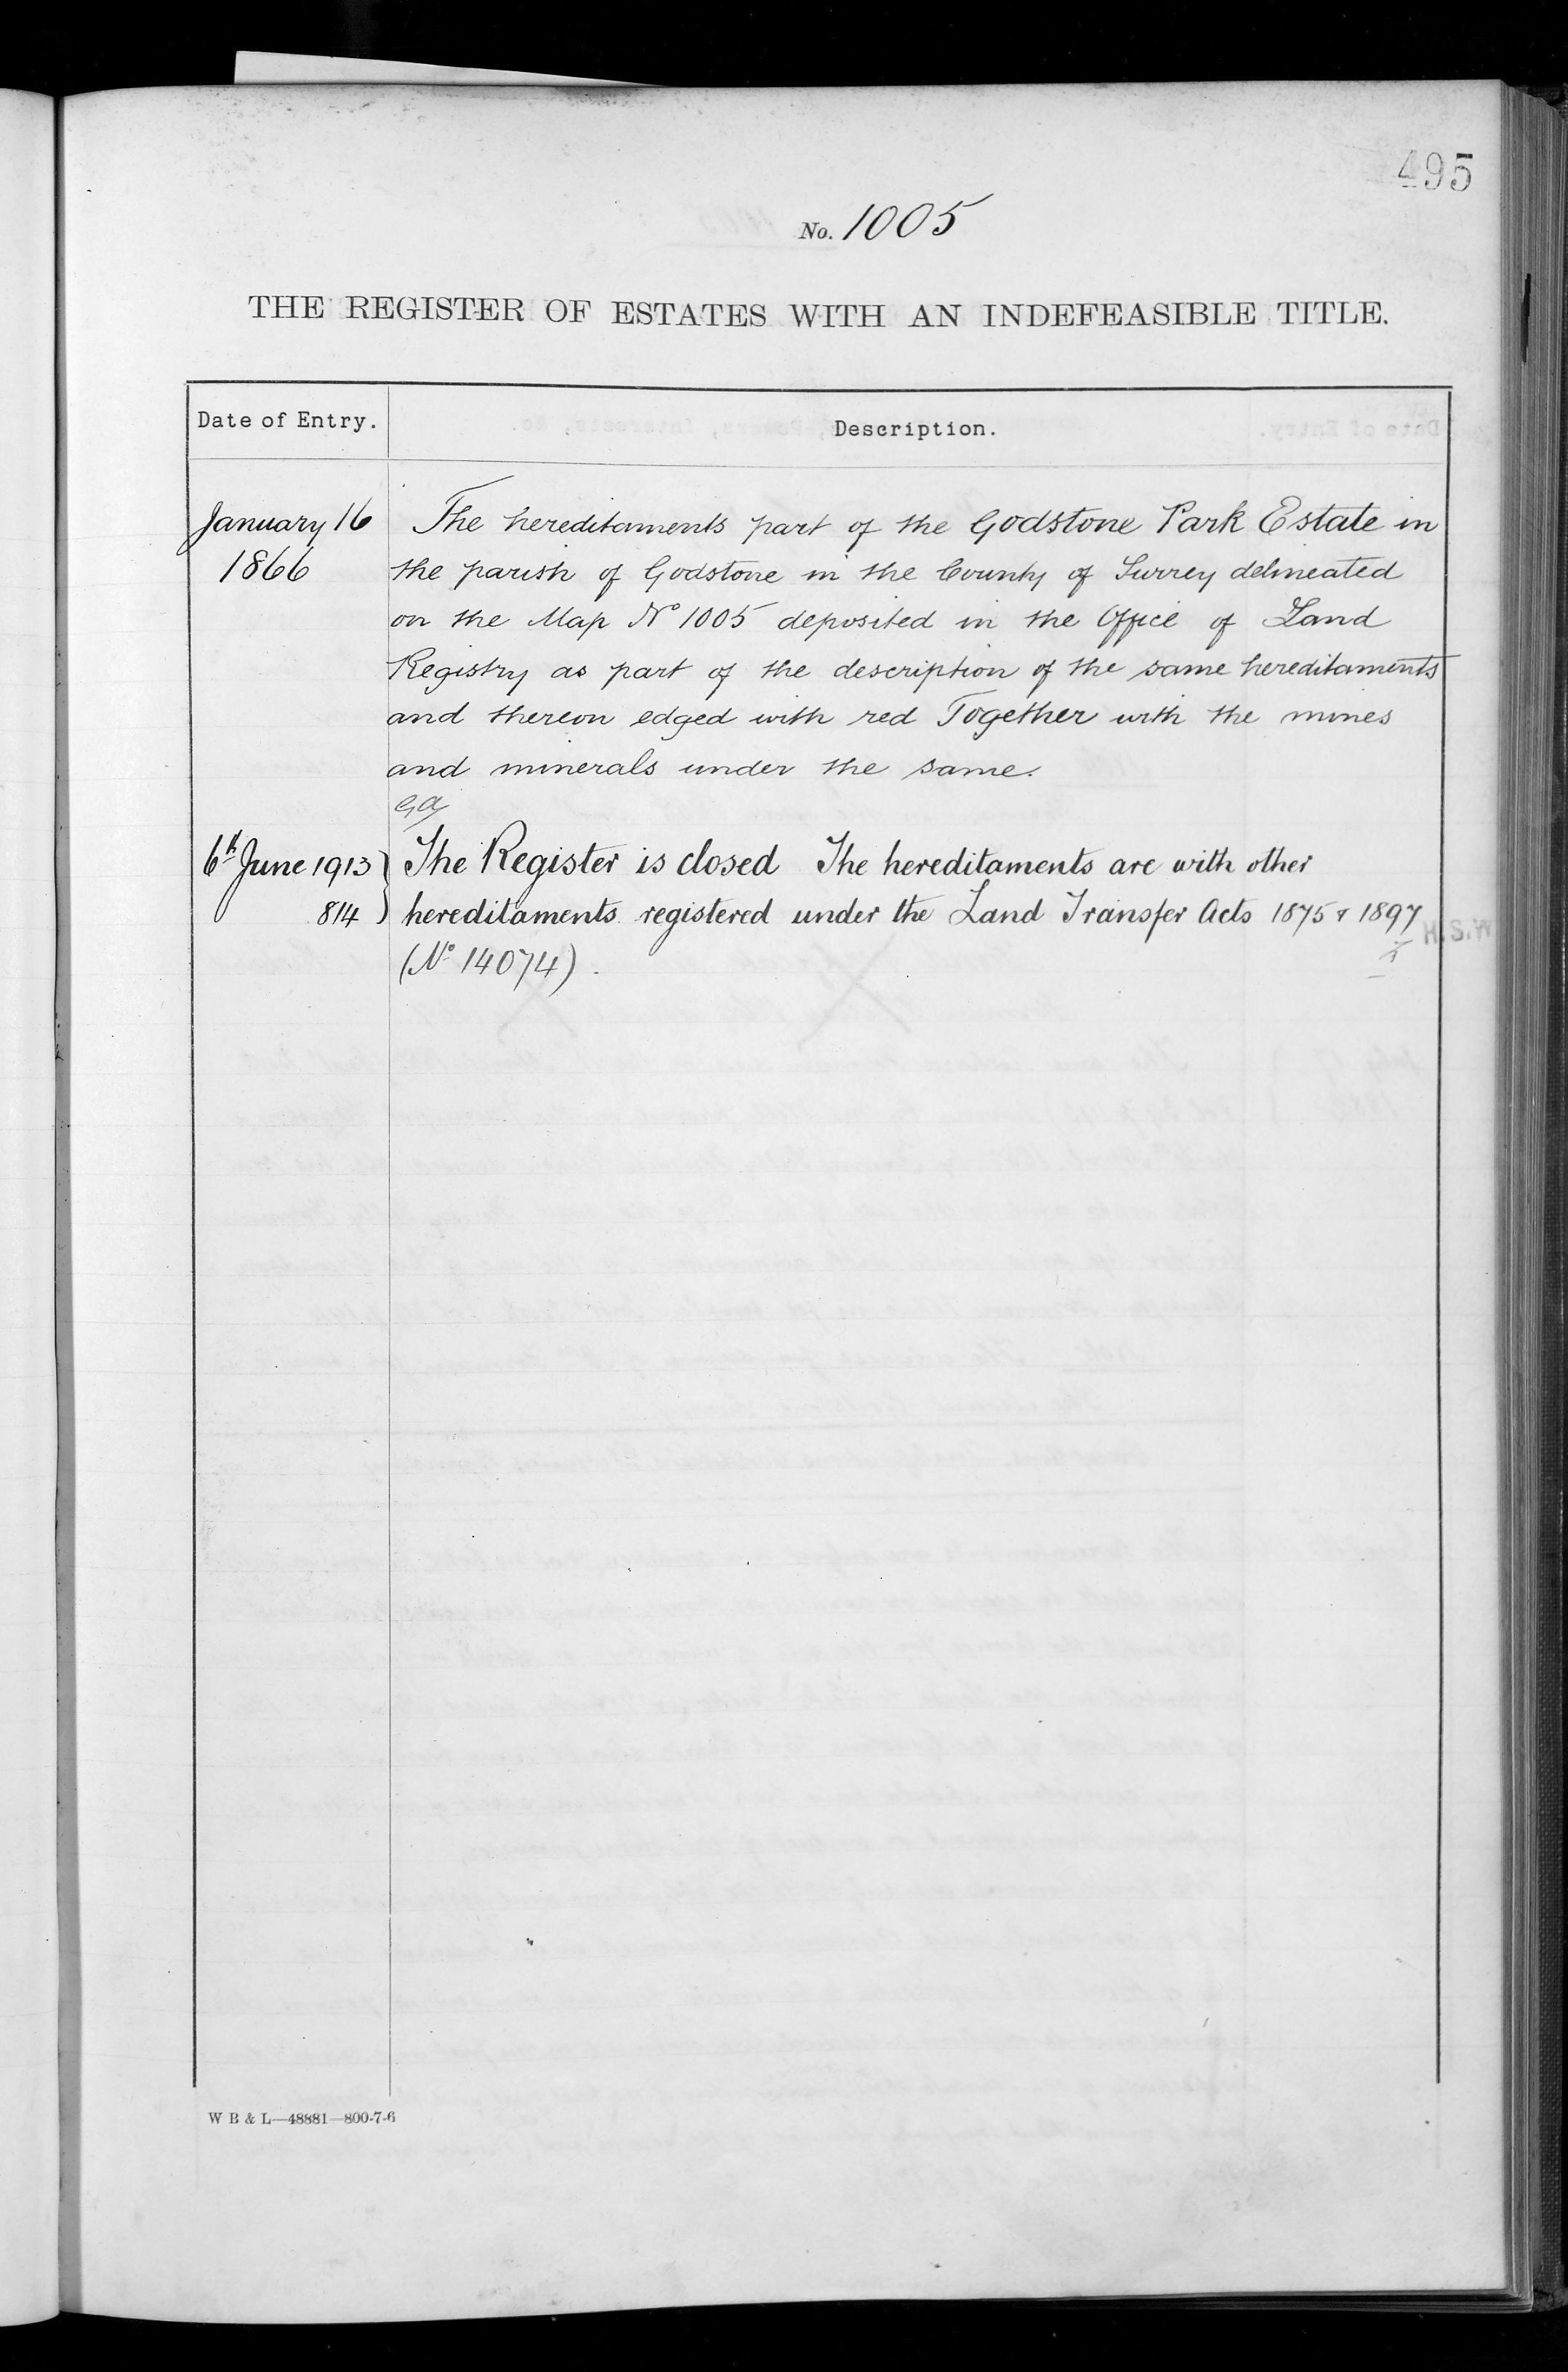 495
No. 1005
THE REGISTER OF ESTATES WITH AN INDEFEASIBLE TITLE.
Date of Entry. Description.
January 16 The hereditaments part of the Godstone Park Estate in
1866 the parish of Godstone in the County of Surrey delineated
on the Map No 1005 deposited in the Office of Land
Registry as part of the description of the same hereditaments
and thereon edged with red Together with the mines
and minerals under the same.
6th June 1913 } The Register is closed The hereditaments are with other
814 } hereditaments registered under the Land Transfer Acts 1875 & 1897
(No 14074).
W B & L—48881—800-7-6